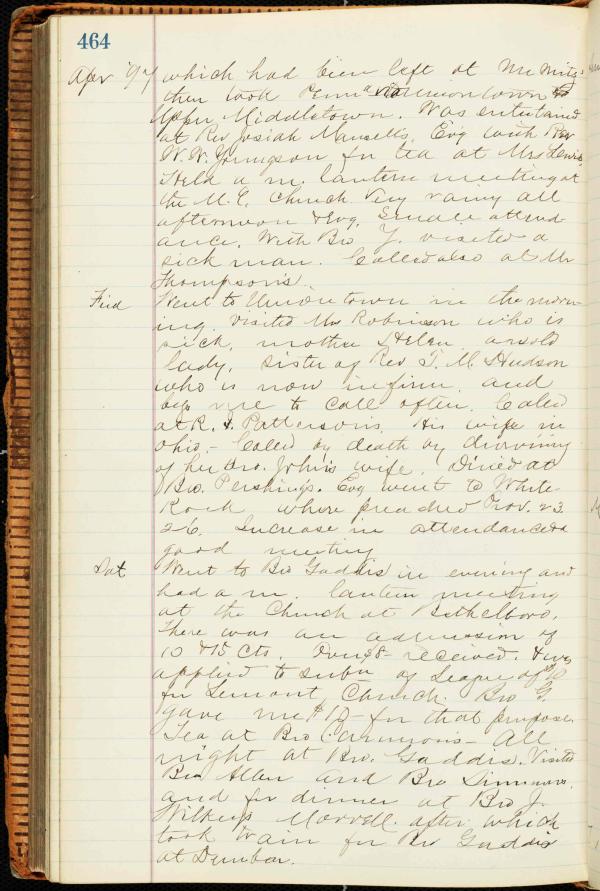 464
Apr '97 which had been left at Mr
then took Penn
Upper Middletown. Was entertained
at Rev Josiah Mansells, Evg with Rev
W. W. Youngson for tea at Mrs Lewis
Held a m. lantern meeting at
the M. E. Church Very rainy all
afternoon & Evg, Small attend-
ance. With Bro Y. visited a
sick man. Called also at Mr
Thompson's.
Frid Went to Uniontown in the morn-
ing. Visited Mrs Robinson who is
sick, mother Helen an old
lady, sister of Rev T. M. Hudson
who is now infirm, and
begs me to call often. Called
at R. Pattersons. His wife in
Ohio - Called by death by drowning
of her bro. John's wife. Dined at
Bro. Pershing's. Evg went to White
Rock where preached Prov. 23.
26. Increase in attendance &
good meeting
Sat Went to Bro Gaddis in evening and
had a m. lantern meeting
at the Church at Bethelboro.
There was an admission of
10 & 15 cts. received. & was
applied to subn of League of
for Lemont Church. Bro G.
gave me $10- for that purpose.
Tea at Bro - All
night at Bro. Gaddis. Visited
Bro Allen and Bro
and for dinner at Bro J.
after which
took train for Gaddis
at Dunbar.